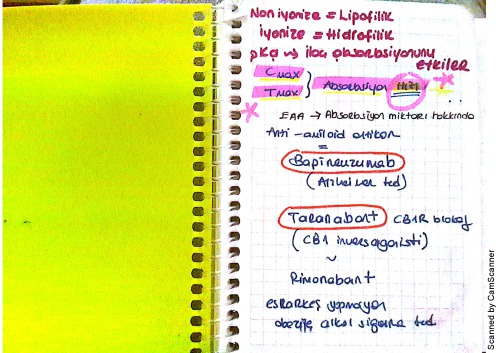 Noniyonize = Lipofilik
iyonize = Hidrofilik
pKa ve ilaç absorbsiyonunu
etkiler
Cmax
Tmax
Absorbsiyon Hızı
EAA → Absorbsiyon miktarı hakkında
Anti-amiloid
=
Bapineuzumab
(Alzheimer ted)
Taranabant CB1R blokaj
(CB1 invers agonisti)
~
Rimonabant
yapmayan
obezite alkol sigara ted
Scanned by CamScanner